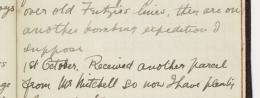 over old Fritzies lines, they are on
another bombing expedition I
suppose.
1st October. Received another parcel
from Mr Mitchell so now I have plenty